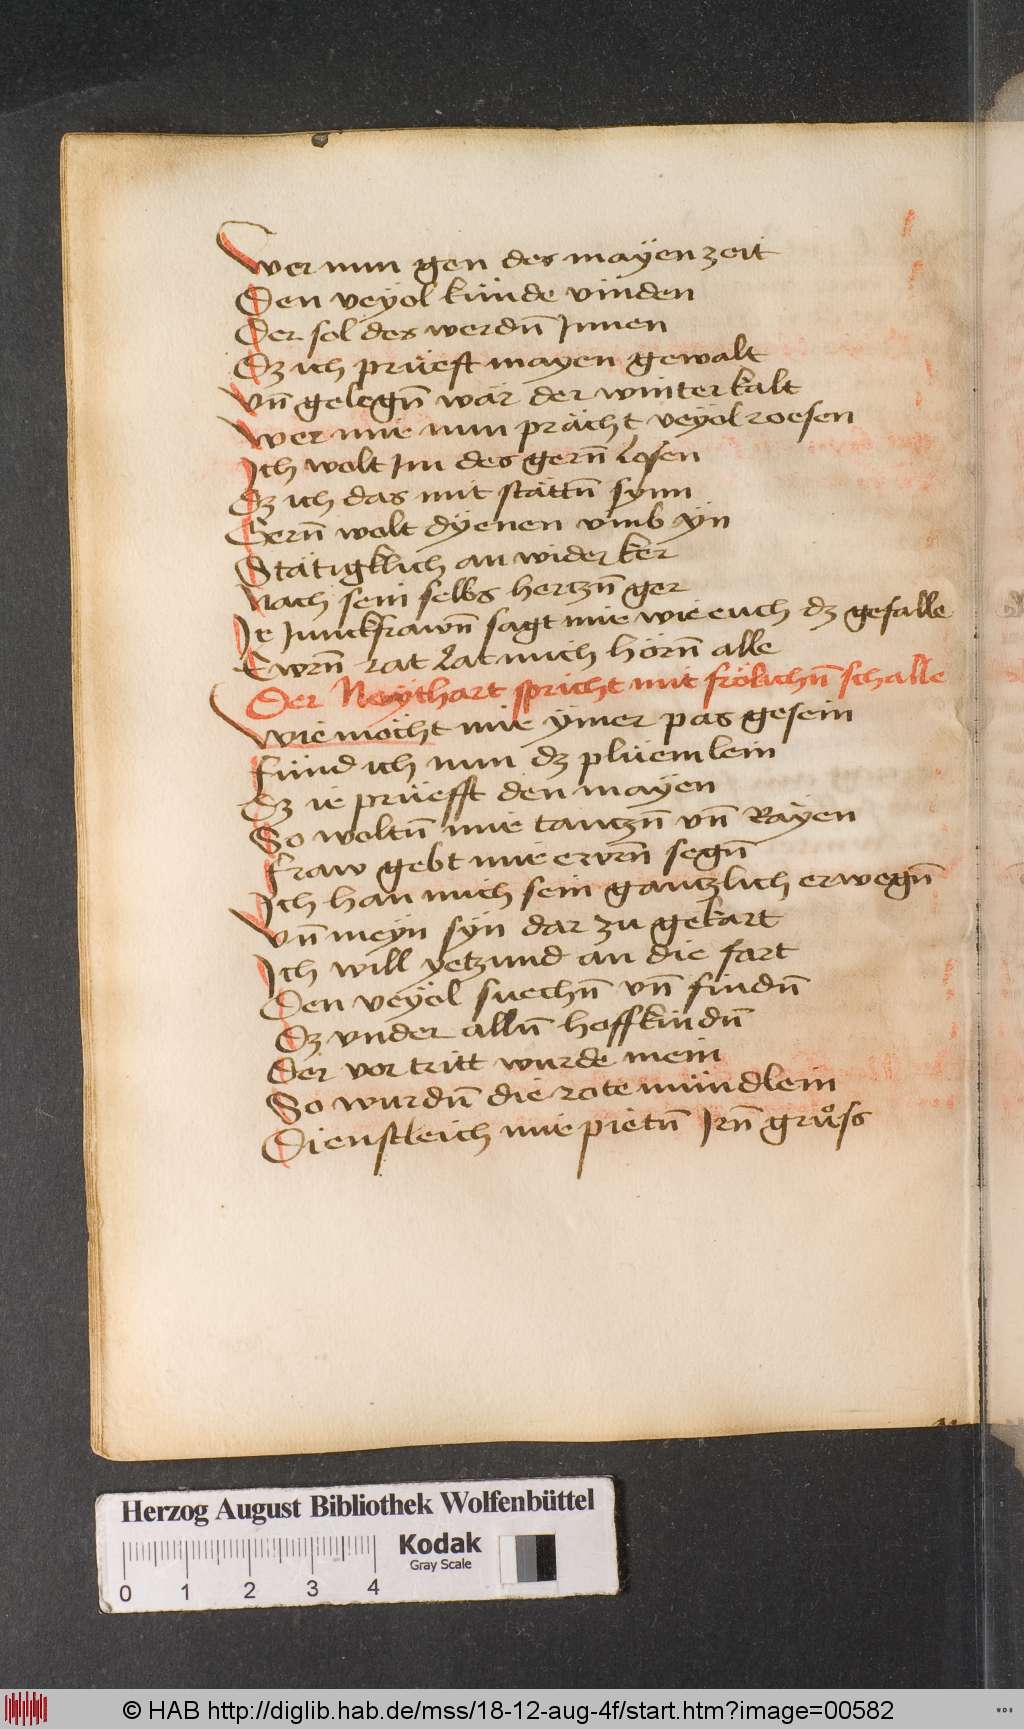 Wer nun gen des mayen zeit
Den veyol kunde vinden
Der sol des werdn̄ Jnnen
Dz ich prüeft mayen gewalt
Vn̄ gelegn̄ wär der winter kalt
Wer mir nun prächt veyol roesen
Ich wolt Im des gern̄ losen
Dz ich das mit stättn̄ synn
Gern̄ wolt dÿenen vmb ÿn
Stätigklich an wider ker
Nach sein selbs hertzn̄ ger
Ir Junckfrawn̄ sagt mir wie euch dz gefalle
Ewrn̄ rat Lat mich hörn̄ alle
Der Neÿthart spricht mit frölichn̄ schalle
Wie möcht mir ÿmer pas gesein
Fund ich nun dz plüemlein
Dz ie prüefft den mayen
So woltn̄ mir tantzn̄ vn̄ Rayen
Fraw gebt mir ewrn̄ segn̄
Ich han mich sein gantzlich erwegn̄
Vn̄ meyn syn dar zu gekart
Ich will yetzund an die fart
Den veyol suechn̄ vn̄ findn̄
Dz vnder alln̄ hoffkindn̄
Der vor tritt wurde mein
So wurdn̄ die rote mündlein
Dienstleich mir pietn̄ Irn̄ grůss
Herzog August Bibliothek Wolfenbüttel
Kodak
Gray Scale
0 1 2 3 4
© HAB http://diglib.hab.de/mss/18-12-aug-4f/start.htm?image=00582